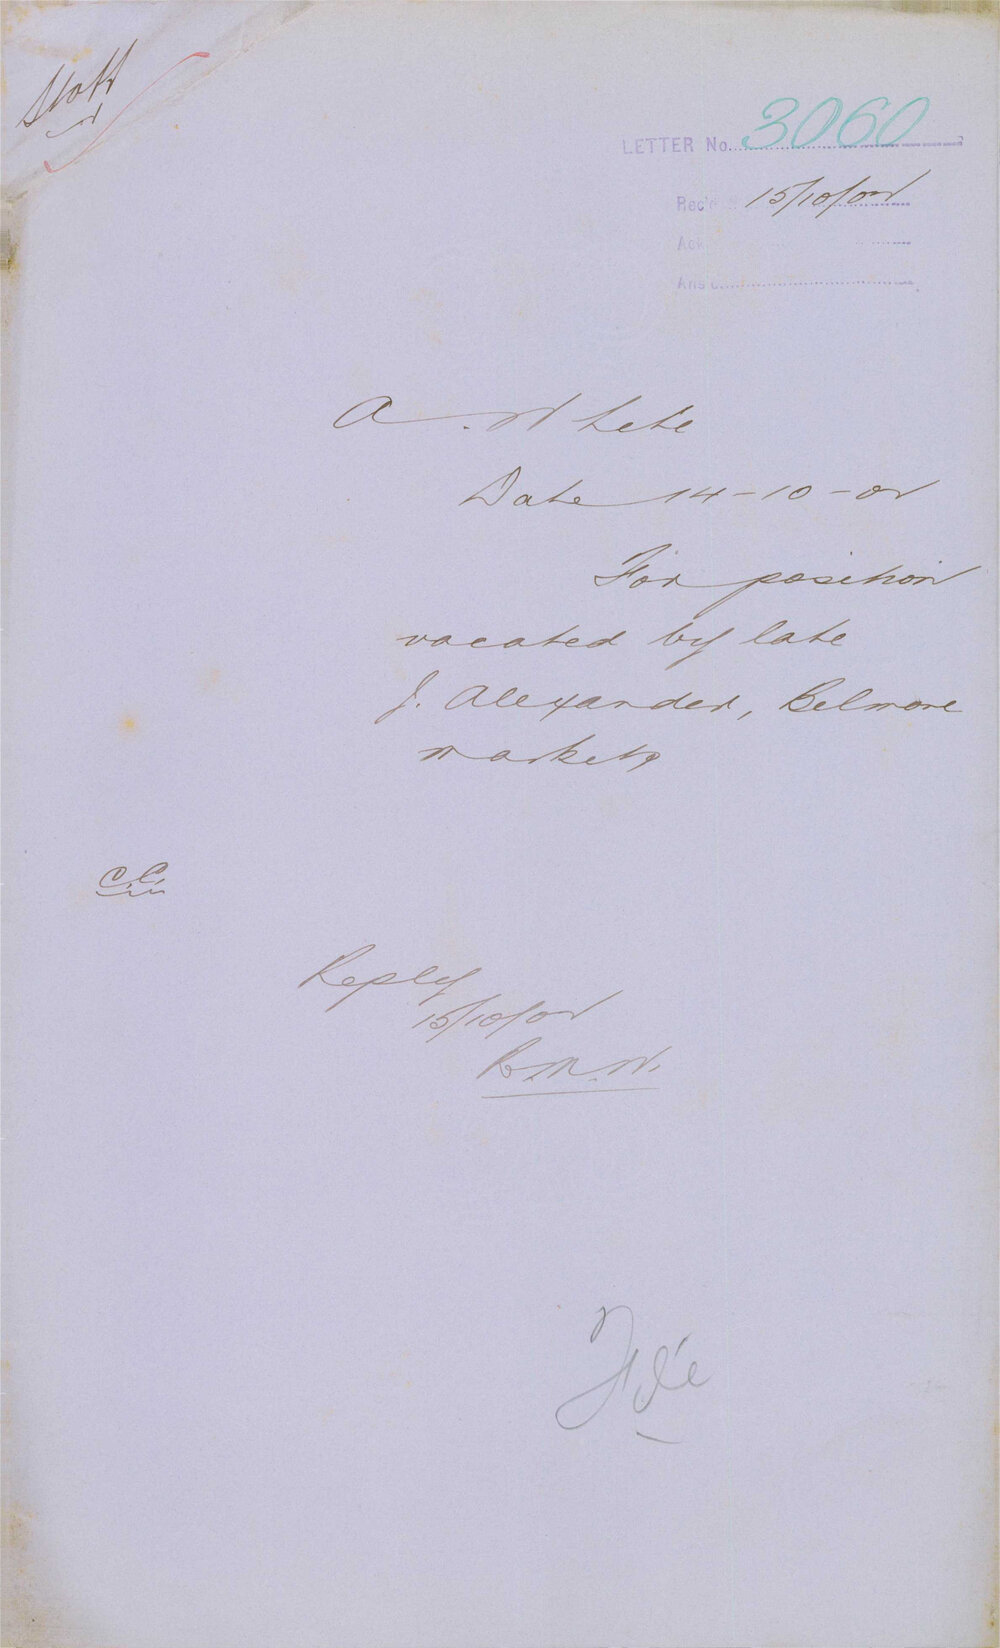 Staff
LETTER No. 3060
Rec'd 15/10/01
Ack
Ans'd
A. White
Date 14-10-01
For position
vacated by late
J. Alexander, Belmore
markets
C.C.
Reply
15/10/01
File